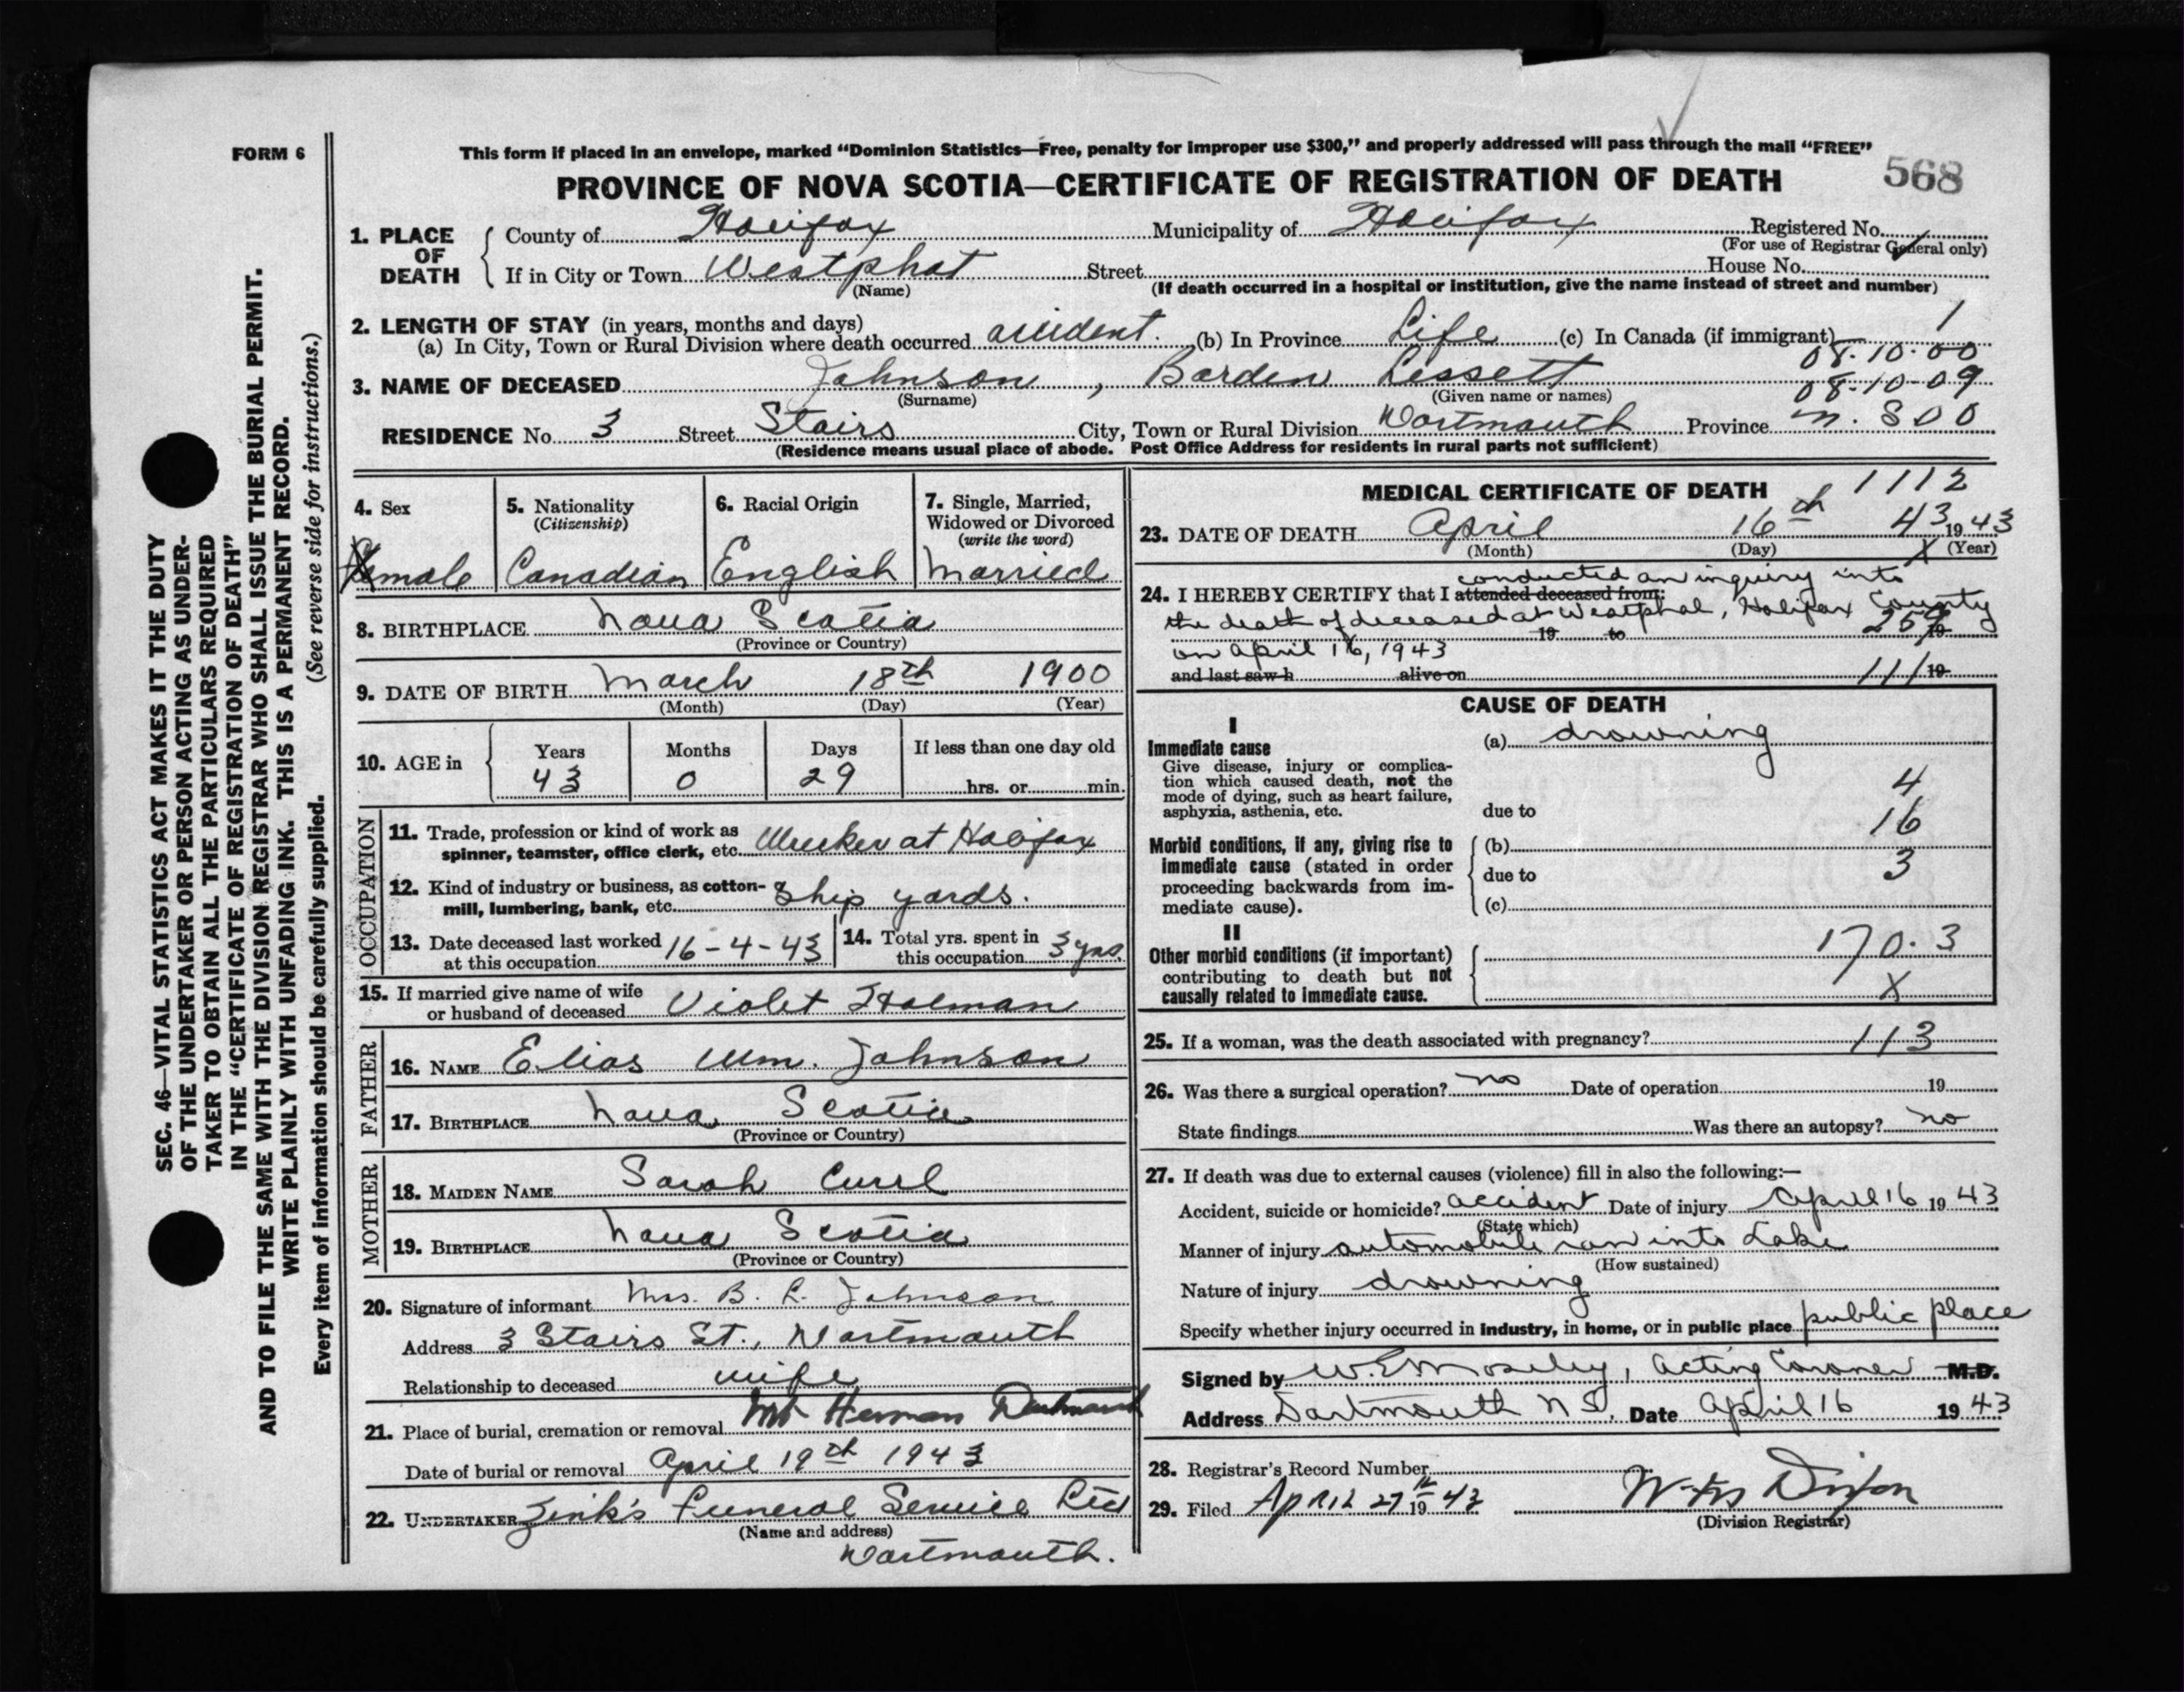 FORM 6
This form if placed in an envelope, marked "Dominion Statistics—Free, penalty for improper use $300," and properly addressed will pass through the mail "FREE"
PROVINCE OF NOVA SCOTIA—CERTIFICATE OF REGISTRATION OF DEATH
568
1. PLACE OF DEATH
County of Halifax Municipality of Halifax Registered No.
(For use of Registrar General only)
If in City or Town Westphal Street House No.
(Name) (If death occurred in a hospital or institution, give the name instead of street and number)
2. LENGTH OF STAY (in years, months and days)
(a) In City, Town or Rural Division where death occurred accident. (b) In Province Life (c) In Canada (if immigrant) 1
08-10-00
3. NAME OF DECEASED Johnson, Borden Lissett
(Surname) (Given name or names) 08-10-09
RESIDENCE No. 3 Street Stairs City, Town or Rural Division Dartmouth Province N. S 00
(Residence means usual place of abode. Post Office Address for residents in rural parts not sufficient)
4. Sex male
5. Nationality (Citizenship) Canadian
6. Racial Origin English
7. Single, Married, Widowed or Divorced (write the word) Married
8. BIRTHPLACE Nova Scotia
(Province or Country)
9. DATE OF BIRTH March 18th 1900
(Month) (Day) (Year)
10. AGE in Years 43 Months 0 Days 29 If less than one day old hrs. or min.
OCCUPATION
11. Trade, profession or kind of work as spinner, teamster, office clerk, etc. at Halifax
12. Kind of industry or business, as cotton-mill, lumbering, bank, etc. Ship yards.
13. Date deceased last worked at this occupation 16-4-43
14. Total yrs. spent in this occupation 3 yrs.
15. If married give name of wife or husband of deceased Violet Holman
FATHER
16. NAME Elias Wm. Johnson
17. BIRTHPLACE Nova Scotia
(Province or Country)
MOTHER
18. MAIDEN NAME Sarah Curl
19. BIRTHPLACE Nova Scotia
(Province or Country)
20. Signature of informant Mrs. B. L. Johnson
Address 3 Stairs St., Dartmouth
Relationship to deceased wife
21. Place of burial, cremation or removal Mt Herman Dartmouth
Date of burial or removal April 19th 1943
22. UNDERTAKER Zink's Funeral Service Ltd
(Name and address)
Dartmouth.
MEDICAL CERTIFICATE OF DEATH 1112
23. DATE OF DEATH April 16th 43 1943
(Month) (Day) X (Year)
conducted an inquiry into
24. I HEREBY CERTIFY that I attended deceased from:
the death of deceased at Westphal, Halifax County
19 to 259 19
on April 16, 1943
and last saw h alive on 111 19
CAUSE OF DEATH
I
Immediate cause
Give disease, injury or complication which caused death, not the mode of dying, such as heart failure, asphyxia, asthenia, etc.
(a) drowning
4
due to
16
Morbid conditions, if any, giving rise to immediate cause (stated in order proceeding backwards from immediate cause).
(b)
due to
3
(c)
II
Other morbid conditions (if important) contributing to death but not causally related to immediate cause.
170.3
X
25. If a woman, was the death associated with pregnancy? 113
26. Was there a surgical operation? no Date of operation 19
State findings Was there an autopsy? no
27. If death was due to external causes (violence) fill in also the following:—
Accident, suicide or homicide? accident Date of injury April 16 1943
(State which)
Manner of injury automobile ran into Lake
(How sustained)
Nature of injury drowning
Specify whether injury occurred in industry, in home, or in public place public place
Signed by W. E. Moseley, Acting Coroner M.D.
Address Dartmouth N S. Date April 16 1943
28. Registrar's Record Number
29. Filed April 27th 1943 Dixon
(Division Registrar)
SEC. 46—VITAL STATISTICS ACT MAKES IT THE DUTY
OF THE UNDERTAKER OR PERSON ACTING AS UNDER-
TAKER TO OBTAIN ALL THE PARTICULARS REQUIRED
IN THE "CERTIFICATE OF REGISTRATION OF DEATH"
AND TO FILE THE SAME WITH THE DIVISION REGISTRAR WHO SHALL ISSUE THE BURIAL PERMIT.
WRITE PLAINLY WITH UNFADING INK. THIS IS A PERMANENT RECORD.
Every item of information should be carefully supplied. (See reverse side for instructions.)